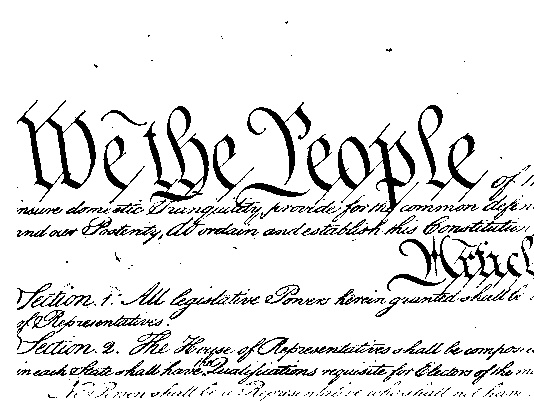 We the People
of
insure domestic Tranquility, provide for the common defen
and our Posterity, do ordain and establish this Constitution
Articl
Section. 1. All legislative Powers herein granted shall be
of Representatives.
Section. 2. The House of Representatives shall be compose
in each State shall have the Qualifications requisite for Electors of the mo
No Person shall be a Representative who shall not have